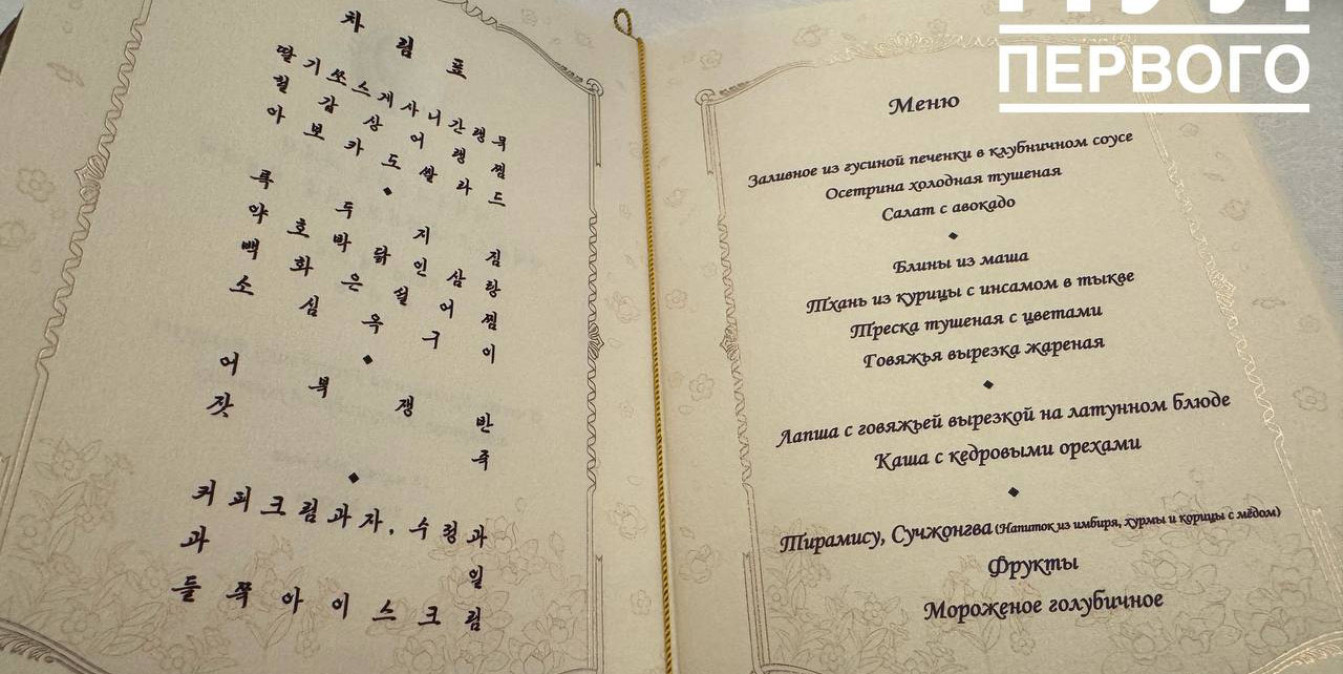 차림표
딸기쏘스게사니간랭묵
철갑상어랭찜
아보카도쌀라드
록두지짐
약호박닭인삼탕
백화은설어찜
소심육구이
어북쟁반
잣죽
커피크림과자, 수정과
과일
들쭉아이스크림
ПУЛ
ПЕРВОГО
Меню
Заливное из гусиной печенки в клубничном соусе
Осетрина холодная тушеная
Салат с авокадо
Блины из маша
Тхань из курицы с инсамом в тыкве
Треска тушеная с цветами
Говяжья вырезка жареная
Лапша с говяжьей вырезкой на латунном блюде
Каша с кедровыми орехами
Тирамису, Сучжонгва (Напиток из имбиря, хурмы и корицы с мёдом)
Фрукты
Мороженое голубичное